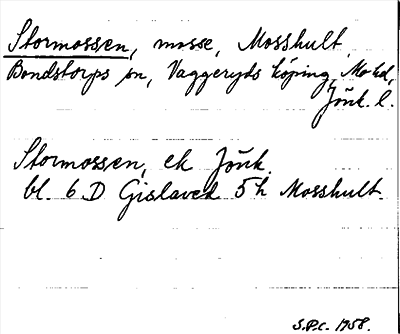 Stormossen, mosse, Mosshult,
Bondstorps sn, Vaggeryds köping, Mo hd,
Jönk. l.
Stormossen, ek Jönk.
bl. 6 D Gislaved 5 h Mosshult.
S.P.C. 1958.